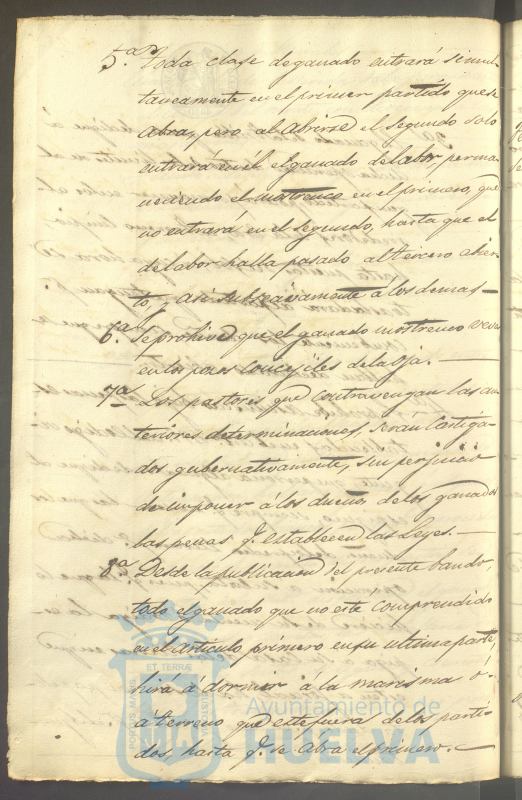 5ª Toda clase de ganado entrará simul-
taneamente en el primer partido que se
abra, pero al abrirse el segundo solo
entrará en él el ganado de labor perma-
neciendo el mostrenco en el primero, que
no entrará en el segundo, hasta que el
de labor halla pasado al tercero abier-
to, y asi subcesivamente á los demas—
6ª Se prohive que el ganado mostrenco beva
en los pozos concejiles de la oja.—
7ª Los pastores que contravengan las an-
teriores determinaciones, serán castiga-
dos gubernativamente, sin perjuicio
de imponer á los dueños de los ganados
las penas q.e establecen las Leyes.—
8ª Desde la publicacion del presente bando,
todo el ganado que no este comprendido
en el articulo primero en su ultima parte,
hirá á dormir á la marisma ó
á terreno que este fuera de los parti-
dos, hasta q.e se abra el primero.—
ET TERRÆ
PORTUS MARIS
Ayuntamiento de
HUELVA